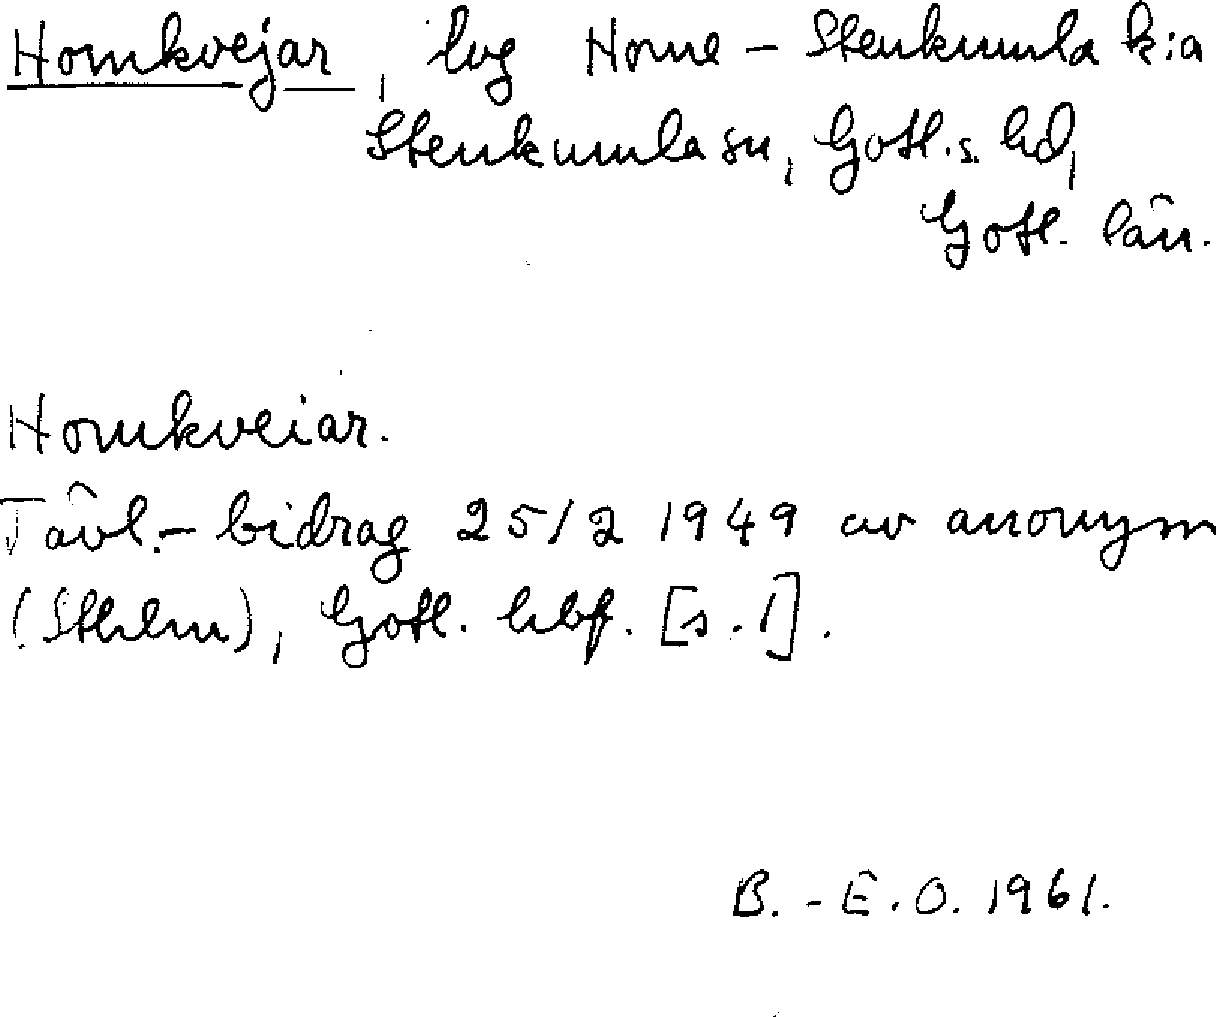 Hornkvejar, lvg Horne - Stenkumla k:a
Stenkumla sn, Gotl.s. hd,
Gotl. län.
Hornkveiar.
Tävl.- bidrag 25/2 1949 av anonym
(Sthlm), Gotl. hbf. [s. 1].
B.-E.O. 1961.